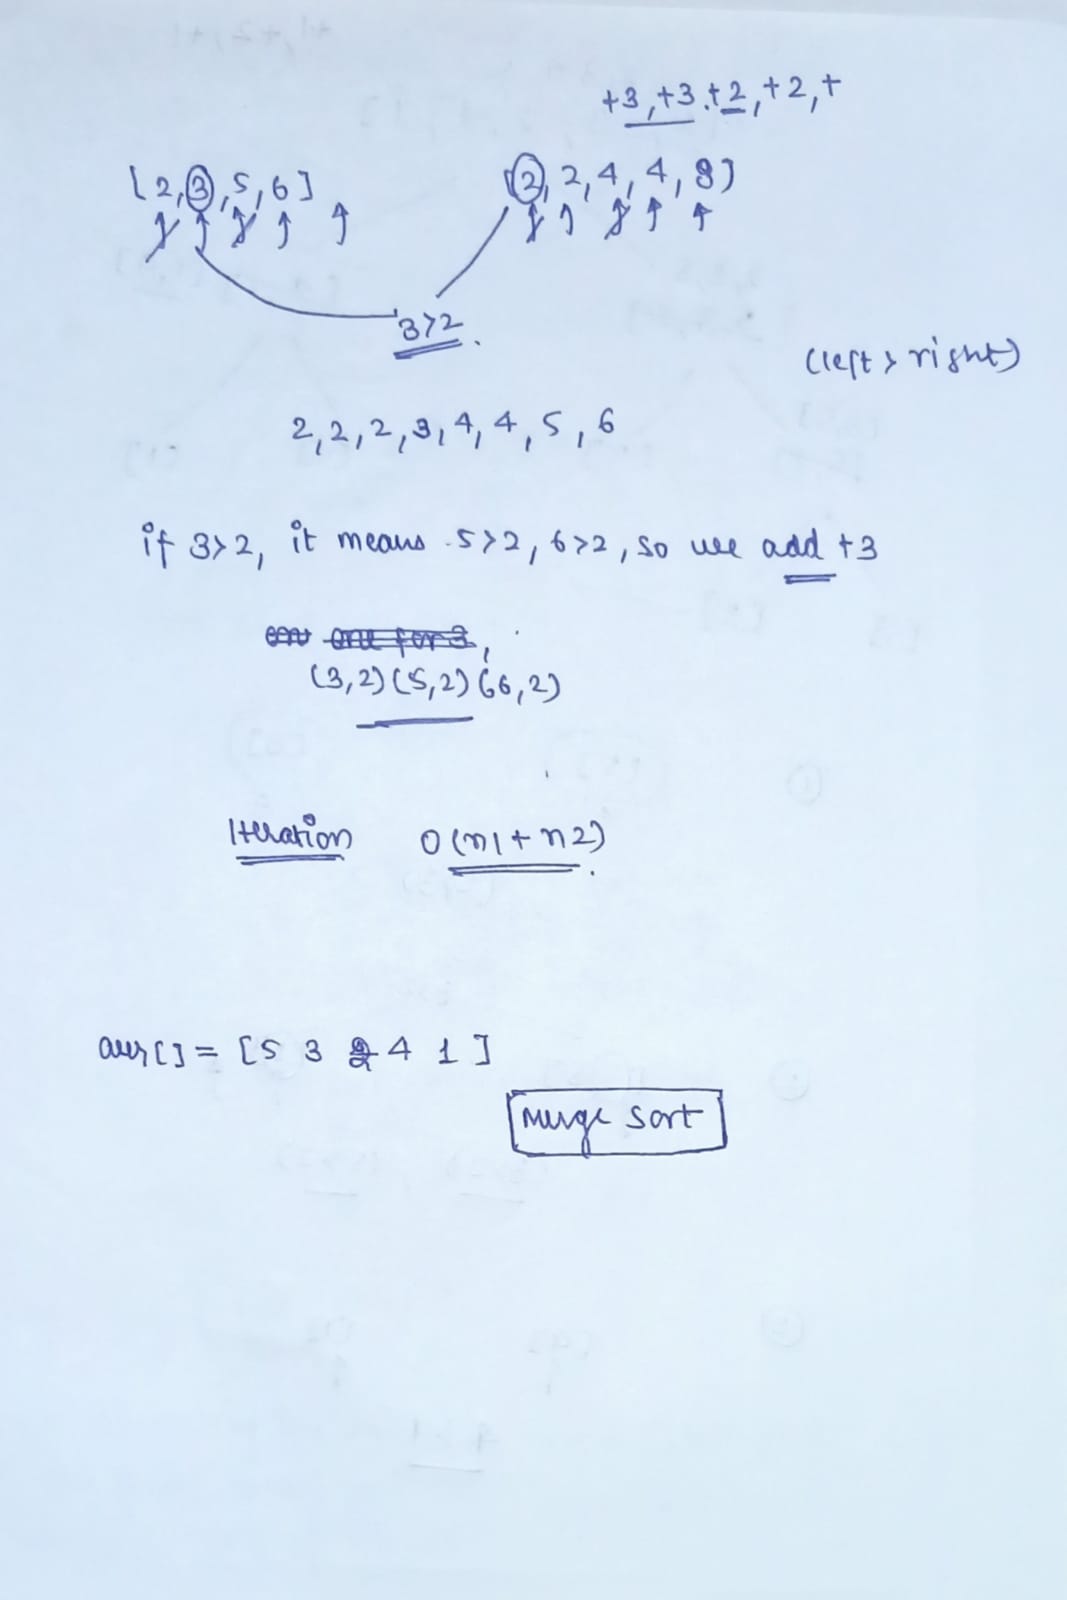 +3,+3,+2,+2,+
[2,3,5,6] [2,2,4,4,8]
3>2.
(left > right)
2,2,2,3,4,4,5,6
if 3>2, it means 5>2, 6>2, so we add +3
(3,2)(5,2)(6,2)
Iteration O(n1+n2).
arr[] = [5 3 2 4 1]
Merge Sort